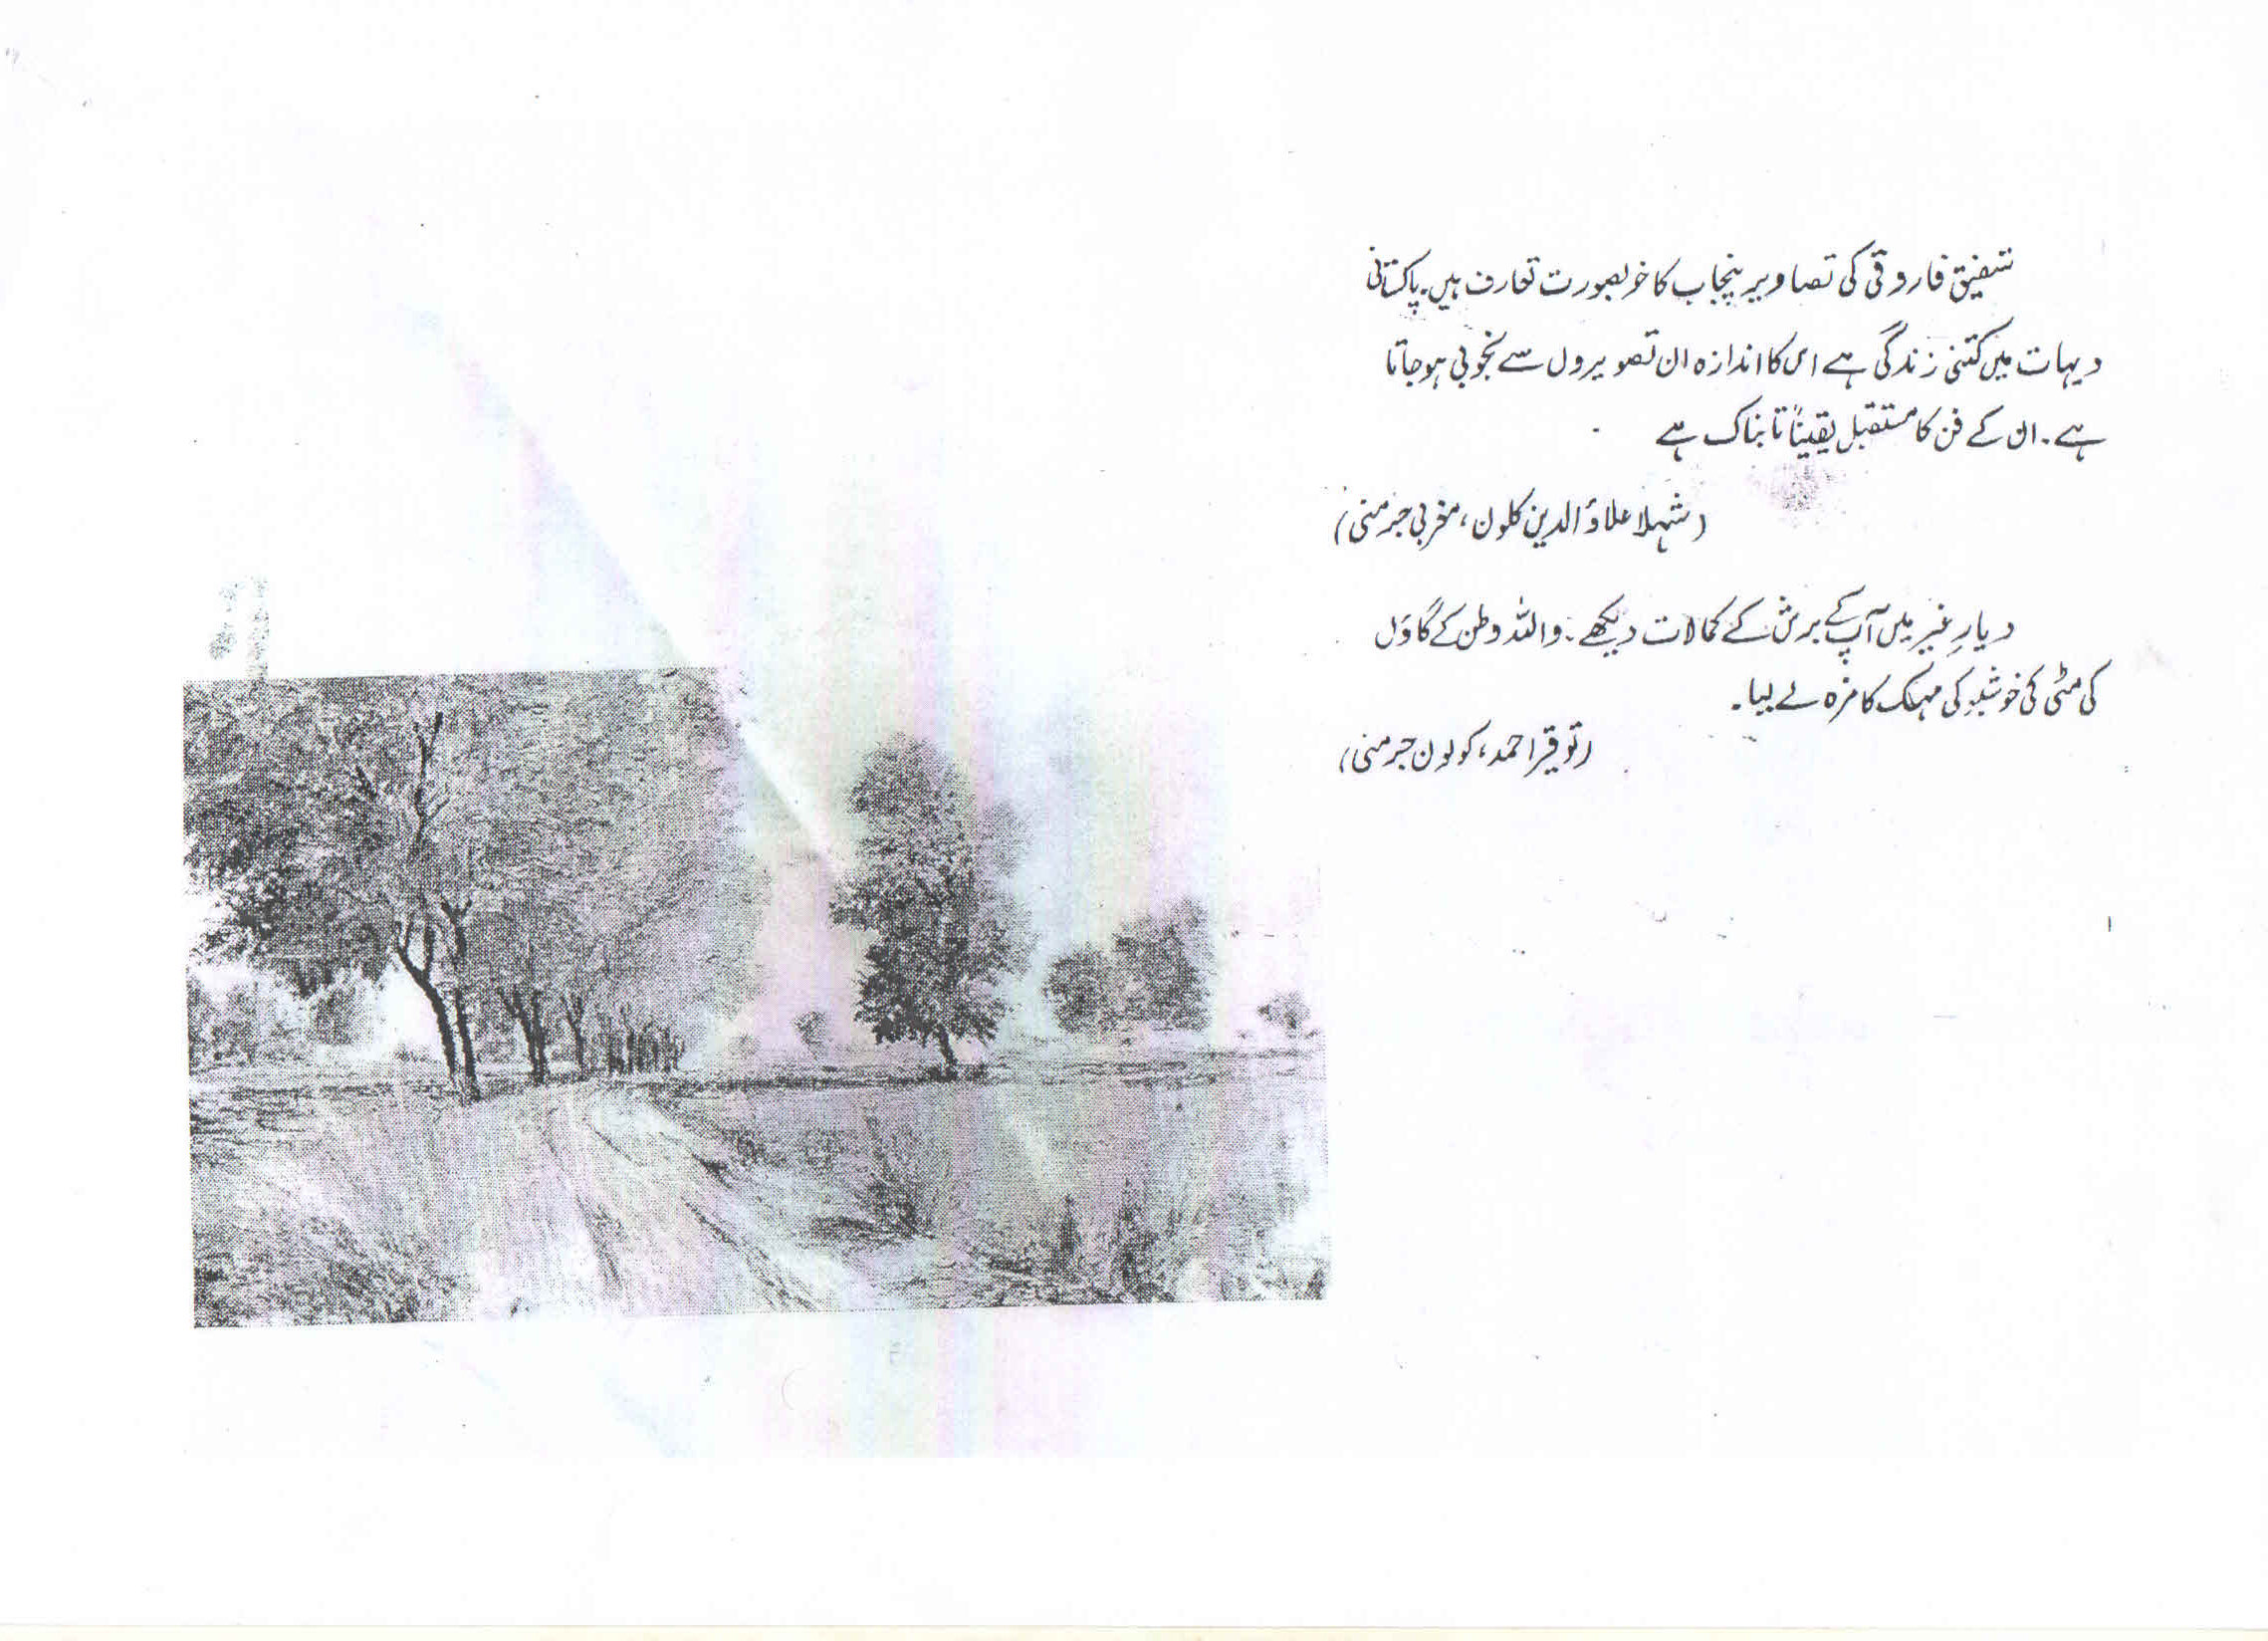 شفیق فاروقی کی تصاویر پنجاب کا خوبصورت تعارف ہیں۔ پاکستانی
دیہات میں کتنی زندگی ہے اس کا اندازہ ان تصویروں سے بخوبی ہو جاتا
ہے۔ ان کے فن کا مستقبل یقیناً تابناک ہے
(شہلا علاؤالدین کلون، مغربی جرمنی)
دیارِ غیر میں آپ کے برش کے کمالات دیکھے۔ واللہ وطن کے گاؤں
کی مٹی کی خوشبو کی مہک کا مزہ لے لیا۔
(توقیر احمد، کولون جرمنی)